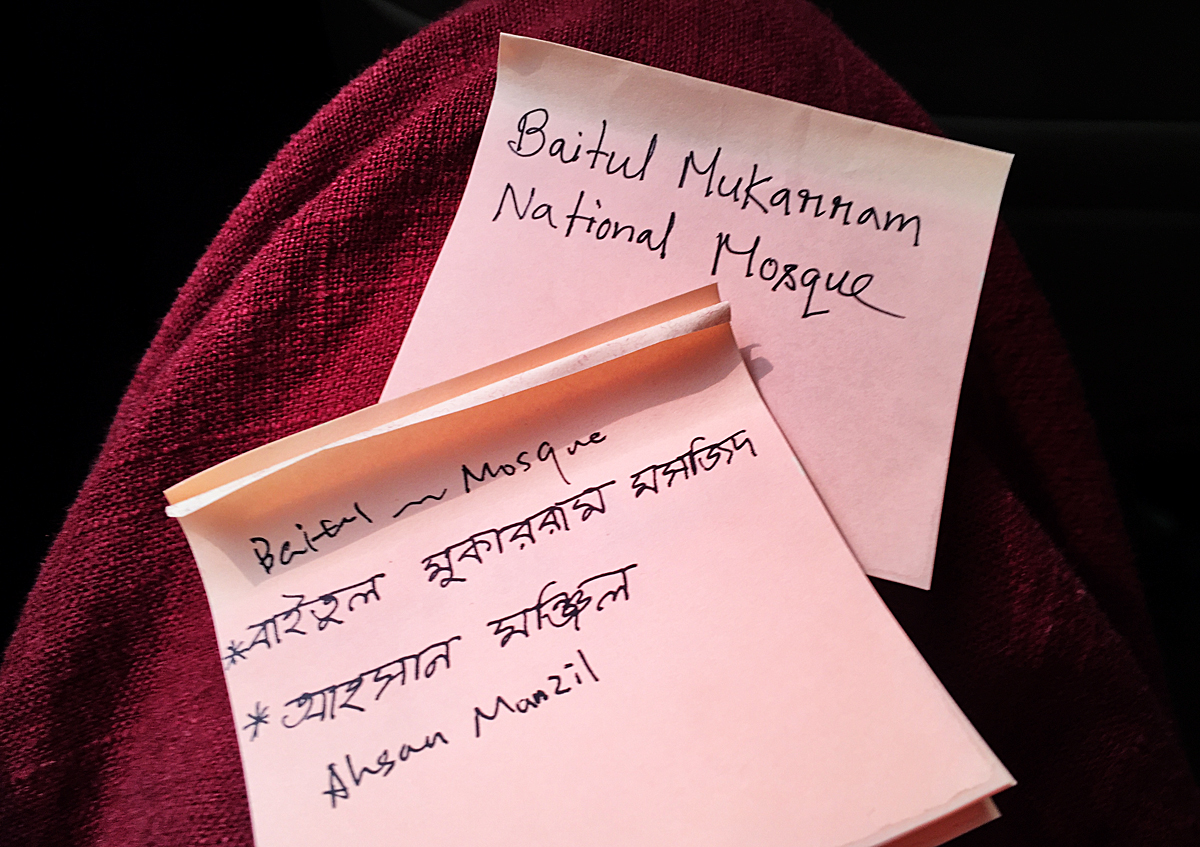 Baitul Mukarram
National Mosque
Baitul ~ Mosque
*বাইতুল মুকাররাম মসজিদ
* আহসান মঞ্জিল
Ahsan Manzil